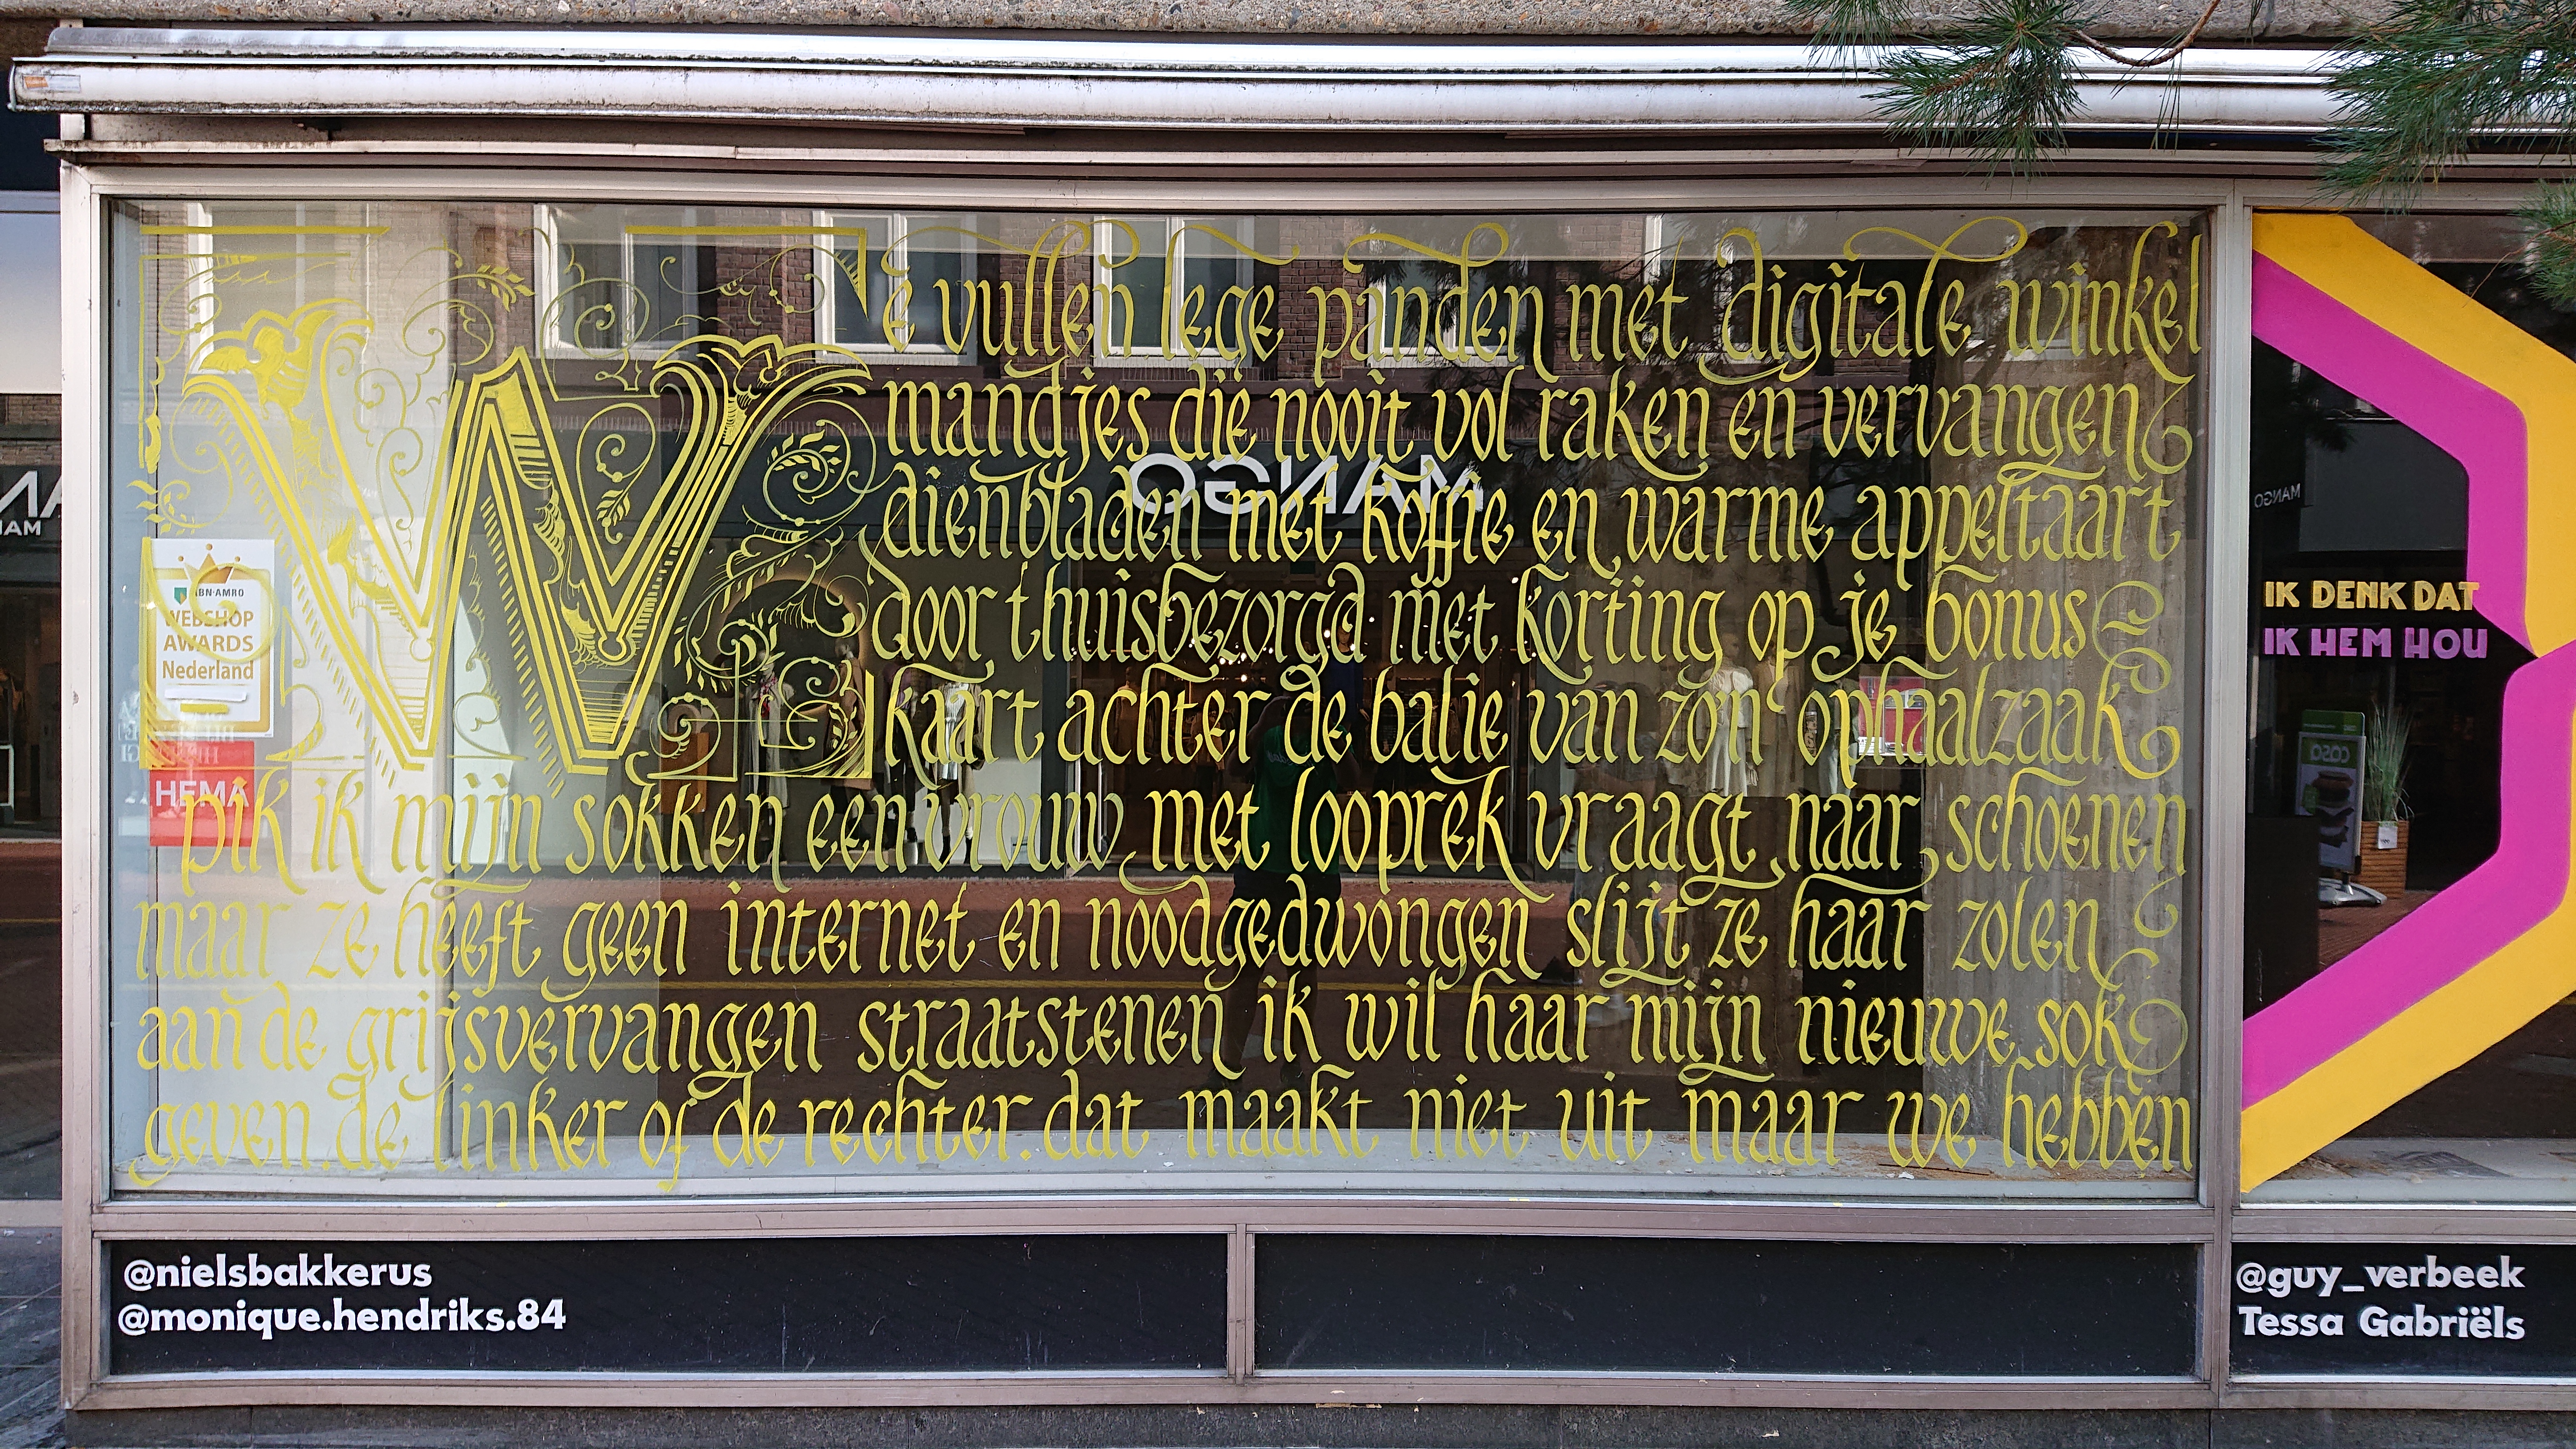 We vullen lege panden met digitale winkel
mandjes die nooit vol raken en vervangen
dienbladen met koffie en warme appeltaart
door thuisbezorgd met korting op je bonus
kaart achter de balie van zo'n ophaalzaak
pik ik mijn sokken een vrouw met looprek vraagt naar schoenen
maar ze heeft geen internet en noodgedwongen slijt ze haar zolen
aan de grijsvervangen straatstenen ik wil haar mijn nieuwe sok
geven. de linker of de rechter. dat maakt niet uit maar we hebben
ABN·AMRO
WEBSHOP
AWARDS
Nederland
HEMA
MANGO
IK DENK DAT
IK HEM HOU
MANGO
@nielsbakkerus
@monique.hendriks.84
@guy_verbeek
Tessa Gabriëls